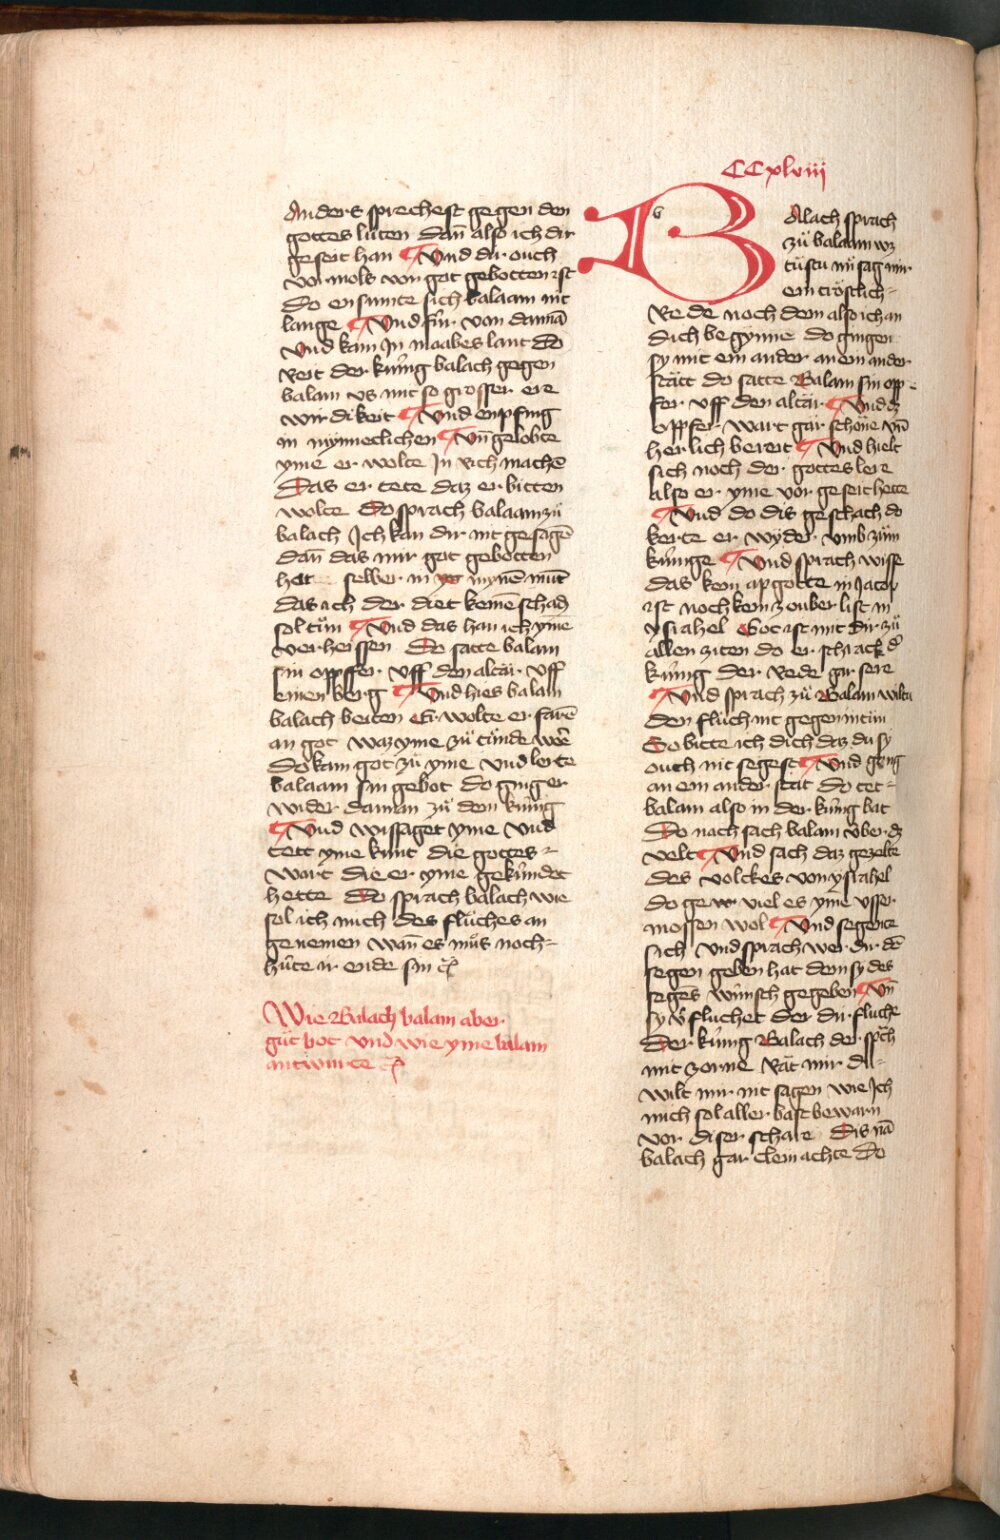 Anders sprechest gegen den
gottes luten dan̄ also ich dir
geseit han ¶ Vnd dir ouch
vor mols von got gebotten ist
do ensumte sich balaam nit
lange ¶ Vnd fůr von dannā
Vnd kam In moabes lant do
reit der kůnig balach gegen
balam vs mit so grosser ere
wirdikeit ¶ Vnd enpfing
in mynneclichen ¶ Vn̄ gelobte
yme er wolte In rich machē
Das er tete daz er bitten
wolte Do sprach balaam zů
balach Ich kan dir nit gesagē
dan̄ das mir got gebotten
het selber in mynē mūt
das ich der diet keinē schad
sol tůn ¶ Vnd das han ich yme
verheissen Do satte balam
sin oppffer vff den altar vff
einen berg ¶ Vnd hies balam
balach beiten Er wolte er farē
an got waz yme zů tůnde were
Do kam got zů yme vnd lerte
balaam sin gebot do ging er
wider daman zů dem kůnig
¶ Vnd wissaget yme vnd
tett yme kunt die gottes
wort die er yme gekůndet
hette Do sprach balach wie
sol ich mich des flůches an
genemen wan̄ es můs noch
hůte ir ende sin
Wie Balach balam aber
gůt bot vnd wie yme balam
antwurte
CCxlviii
BAlach sprach
zů balaam wz
tůstu mir sag mir
ein tröstlich
Rede noch dem also ich an
dich begynne do gingen
sy mit ein ander an ein ander
statt do satte Balam sin opp
fer vff den altar ¶ Vnd dz
oppfer wart gar schöne vn̄
herlich bereit ¶ Vnd hielt
sich noch der gottes lere
also er yme vor geseit hette
¶ Vnd do dis geschach do
kerte er wyder vmb zům
kůnige ¶ Vnd sprach wisse
das kein apgotte in Jacop
ist noch kein zouber list in
ysrahel Got ist mit dir zů
allen ziten do er schrack d'
kůnig der rede gar sere
¶ Vnd sprach zů Balam wiltu
den flůch nit gegen in tůn
So bitte ich dich daz du sy
ouch nit segest ¶ Vnd ging
an ein ander stat do tet
balam also in der kůnig bat
Do nach sach balam v̊ber dz
velt ¶ Vnd sach daz gezelte
des volckes von ysrahel
do gewr viel es yme vsser
mossen wol ¶ Vnd segente
sich vnd sprach wer dir dē
segen geben hat dem sy des
seges wůnsch gegeben ¶ Vn̄
sy v'fluchet der dir fluche
Der kůnig Balach der sprach
mit zorne Rat mir du
wilt mir nit sagen wie Ich
mich sol aller bast bewarn
vor diser schare Dis nā
balach gar clein achte do